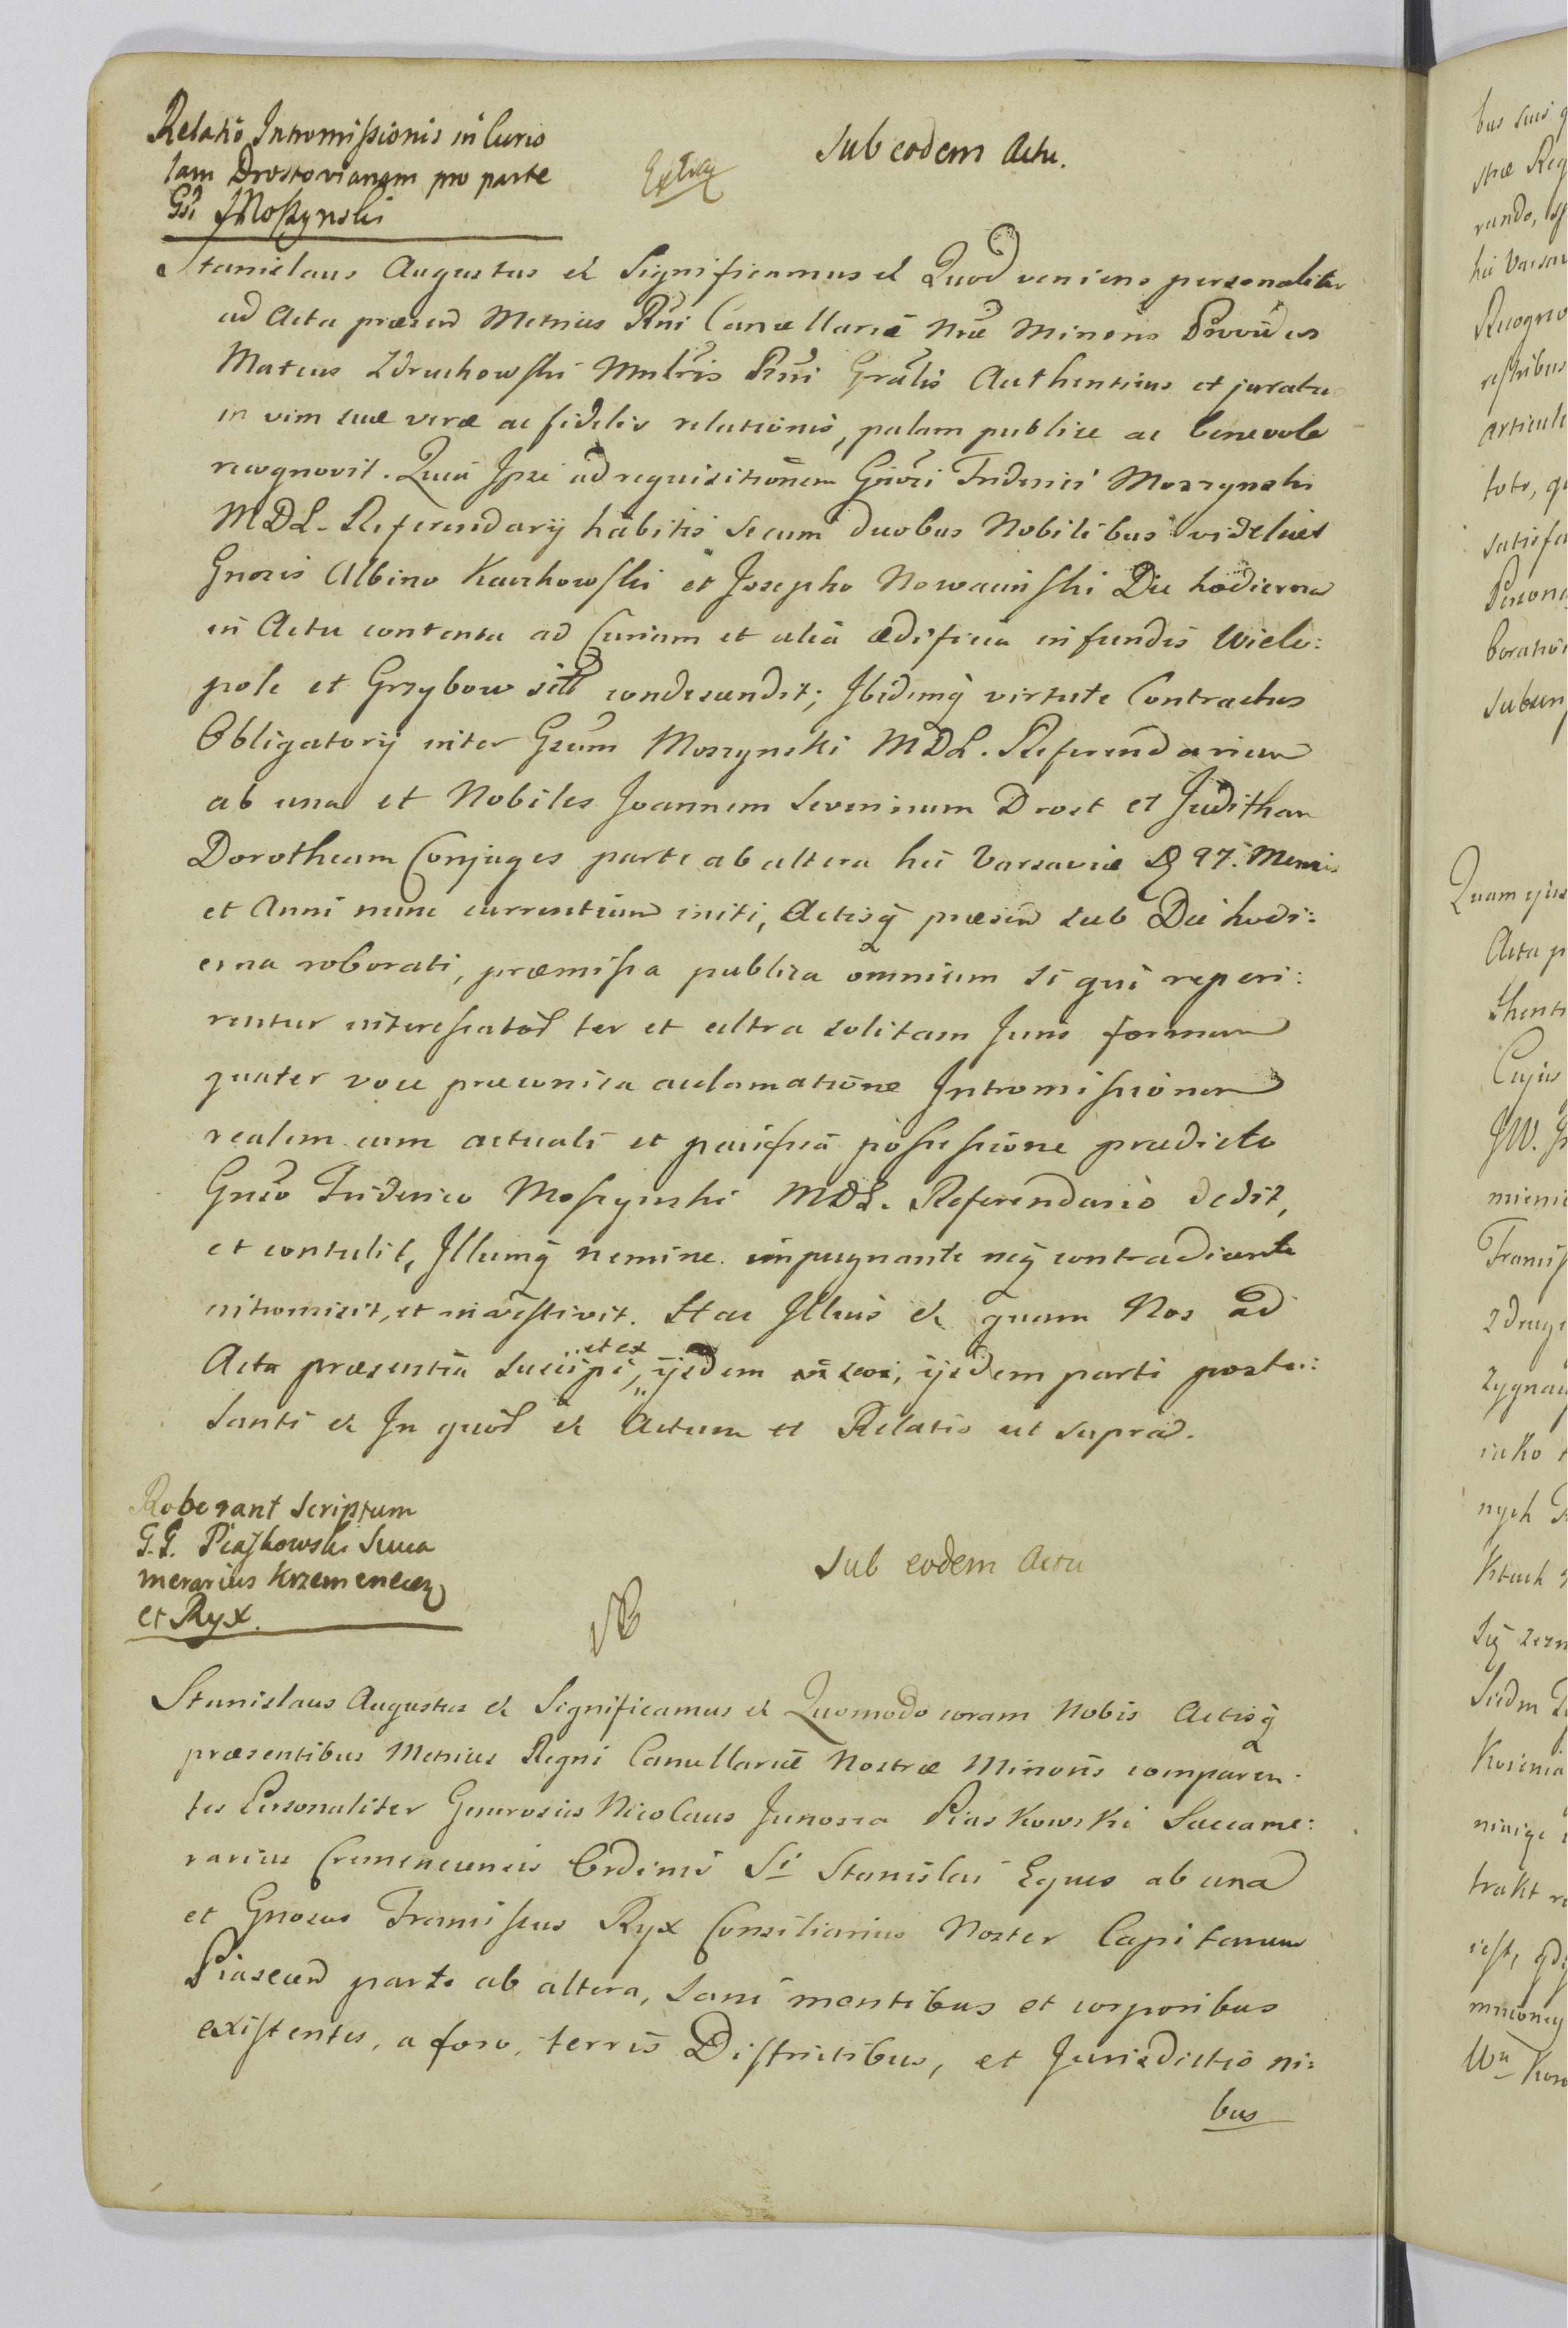 Relatio Intromissionis in Curio
lam Drostovianam pro parte
Gsi Moszynski
Sub eodem Actu.
Stanislaus Augustus et Significamus et Quod veniens personaliter
ad Acta præsen Metrices Rni Cancellariæ Nræ Minoris Providus
Mateus Zdruchowski Mnlris Rni Gralis Authenticus et juratus
in vim suæ veræ ac fidelis relationis, palam publice ac benevole
recognovit. Quia Ipse ad requisitionem Gnosi Friderici Moszynski
MDL. Referendarij habitis secum duobus Nobilibus videlicet
Gnosis Albino Karzkowski et Josepho Nowacinski Die hodierna
in Actu contenta ad Curiam et alia ædificia in fundis Wielo:
pole et Grzybow sit condescendit; Ibidemq virtute Contractus
Obligatorij inter Gsum Moszynski MDL. Referendarium
ab una et Nobiles Joannem Severinum Drost et Juditham
Dorotheam Conjuges parte ab altera hic Varsaviæ D 27. Mensis
et Anni nunc currentium initi, Actisq præsen sub Die hodi:
erna roborati, præmissa publica omnium si qui reperi:
rentur interessatod ter et ultra solitam Juris formam
quater voce præconica aclamatione Intromissionem
realem cum actuali et pacifica possessione prædicto
Gnso Friderico Moszynski MDL. Referendario dedit,
et contulit, Illumq nemine impugnante neq contradicente
intromisit, et investivit. Hac Illius et quam Nos ad
Acta præsentia suscipi, et ex ijsdem ijsdem parti postu:
lanti et In quod et Actum et Relatio ut supra.
Roborant Scriptum
G.G. Piaskowski Succa
merarius Krzemenecen
et Ryx.
Sub eodem Actu
NB
Stanislaus Augustus et Significamus et Quomodo coram Nobis Actisq
præsentibus Metrices Regni Cancellariæ Nostræ Minoris comparen:
tes Personaliter Generosus Nicolaus Junosza Piaskowski Succame:
rarius Cremenecensis Ordinis Si Stanislai Eques ab una
et Gnosus Franciscus Ryx Consiliarius Noster Capitaneus
Piasecen parte ab altera, sani mentibus et corporibus
existentes, a foro, terris Districtibus, et Jurisdictioni:
bus